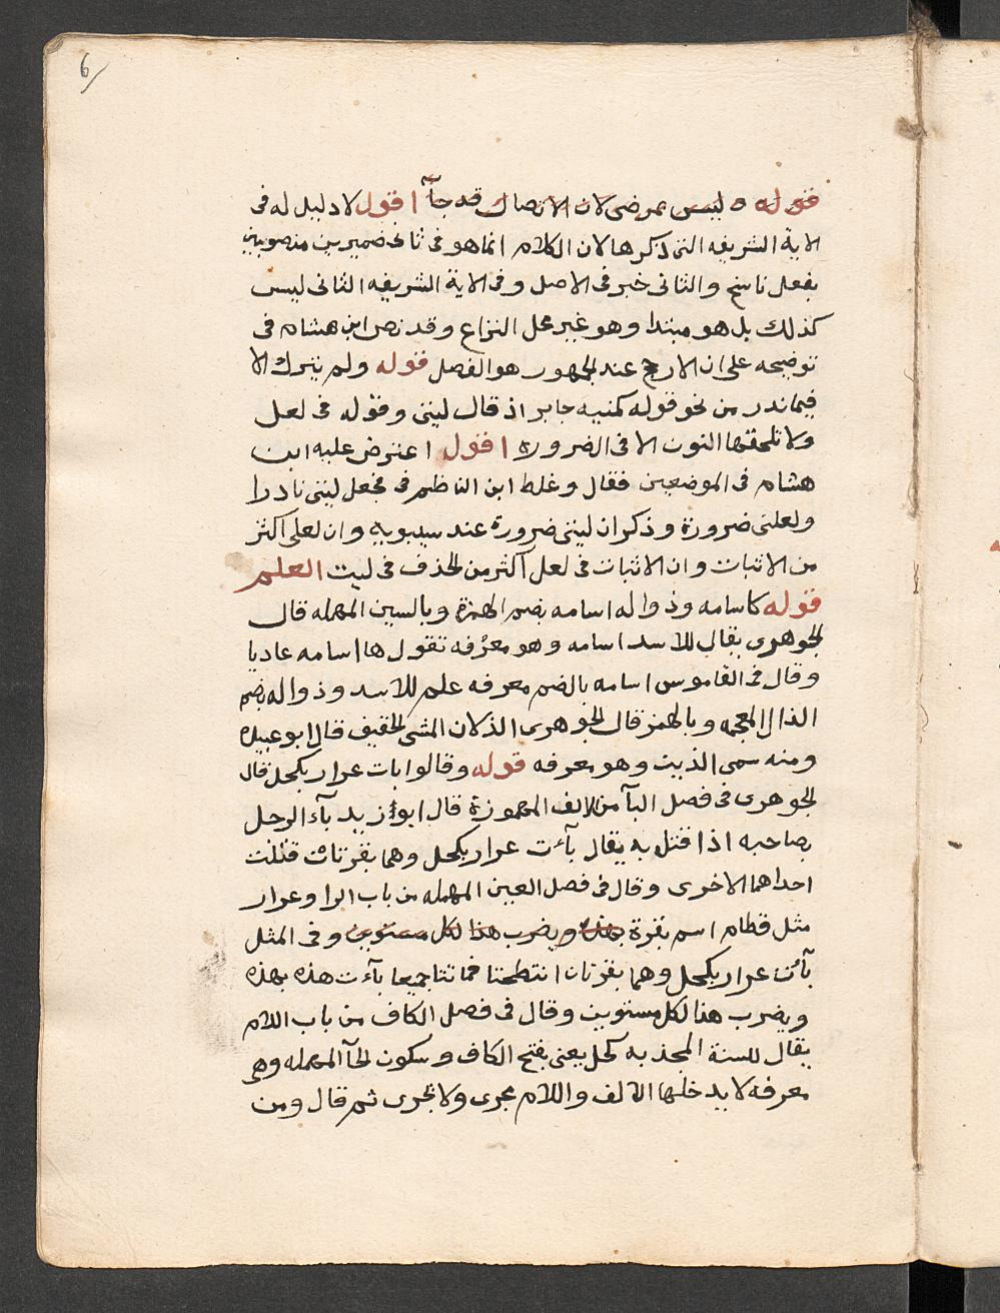 6
قوله وليس بمرضى لان الاتصال قد جآ اقول لا دليل له فى
الاية الشريفه التى ذكرها لان الكلام انما هو فى ثانى ضميرين منصوبين
بفعل ناسخ والثانى خبر فى الاصل وفى الاية الشريفه الثانى ليس
كذلك بل هو مبتدا وهو غير محل النزاع وقد نص ابن هشام فى
توضيحه على ان الارجح عند الجمهور هو الفصل قوله ولم يترك الا
فيما ندر من نحو قوله كمنيه جابر اذ قال ليتى وقوله فى لعل
ولا تلحقها النون الا فى الضرورة اقول اعترض عليه ابن
هشام فى الموضعين فقال وغلط ابن الناظم فى جعل ليتى نادرا
ولعلنى ضرورة وذكر ان ليتى ضرورة عند سيبويه وان لعلى اكثر
من الاثبات وان الاثبات فى لعل اكثر من الحذف فى ليت العلم
قوله كاسامه وذواله اسامه بضم الهمزة وبالسين المهمله قال
الجوهرى يقال للاسد اسامه وهو معرفه تقول هاا اسامه عاديا
وقال فى القاموس اسامه بالضم معرفه علم للاسد وذواله بضم
الذال المعجمه وبالهمز قال الجوهرى الذلان المشى الخفيف قال ابو عبيده
ومنه سمى الذيب وهو معرفه قوله وقالوا بات عرار بكحل قال
الجوهرى فى فصل البآ من الالف المهموزة قال ابو زيد بآء الرجل
بصاحبه اذا قتل به يقال بآءت عرار بكحل وهما بقرتان قتلت
احداهما الاخرى وقال فى فصل العين المهمله من باب الرا وعرار
مثل قطام اسم بقرة بهذه ويضرب هذا لكل مستويين وفى المثل
بآئت عرار بكحل وهما بقرتان انتطحتا فماتتا جميعا بآءت هذه بهذه
ويضرب هذا لكل مستويين وقال فى فصل الكاف من باب اللام
يقال للسنة المجدبه كحل يعنى بفتح الكاف وسكون الحآ المهمله وهى
معرفه لا يدخلها الالف واللام تجرى ولا تجرى ثم قال ومن